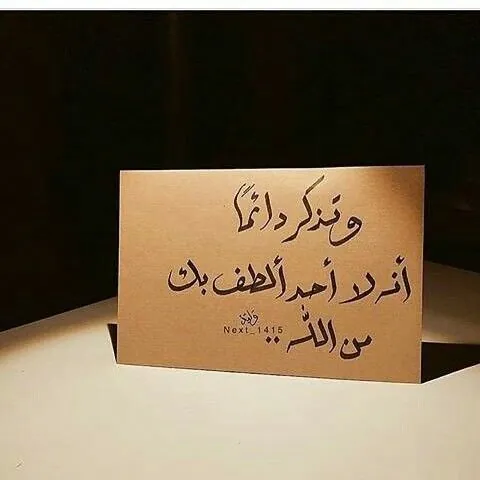 وتذكر دائمًا
أنه لا أحد ألطف بك
من الله ..
Next_1415